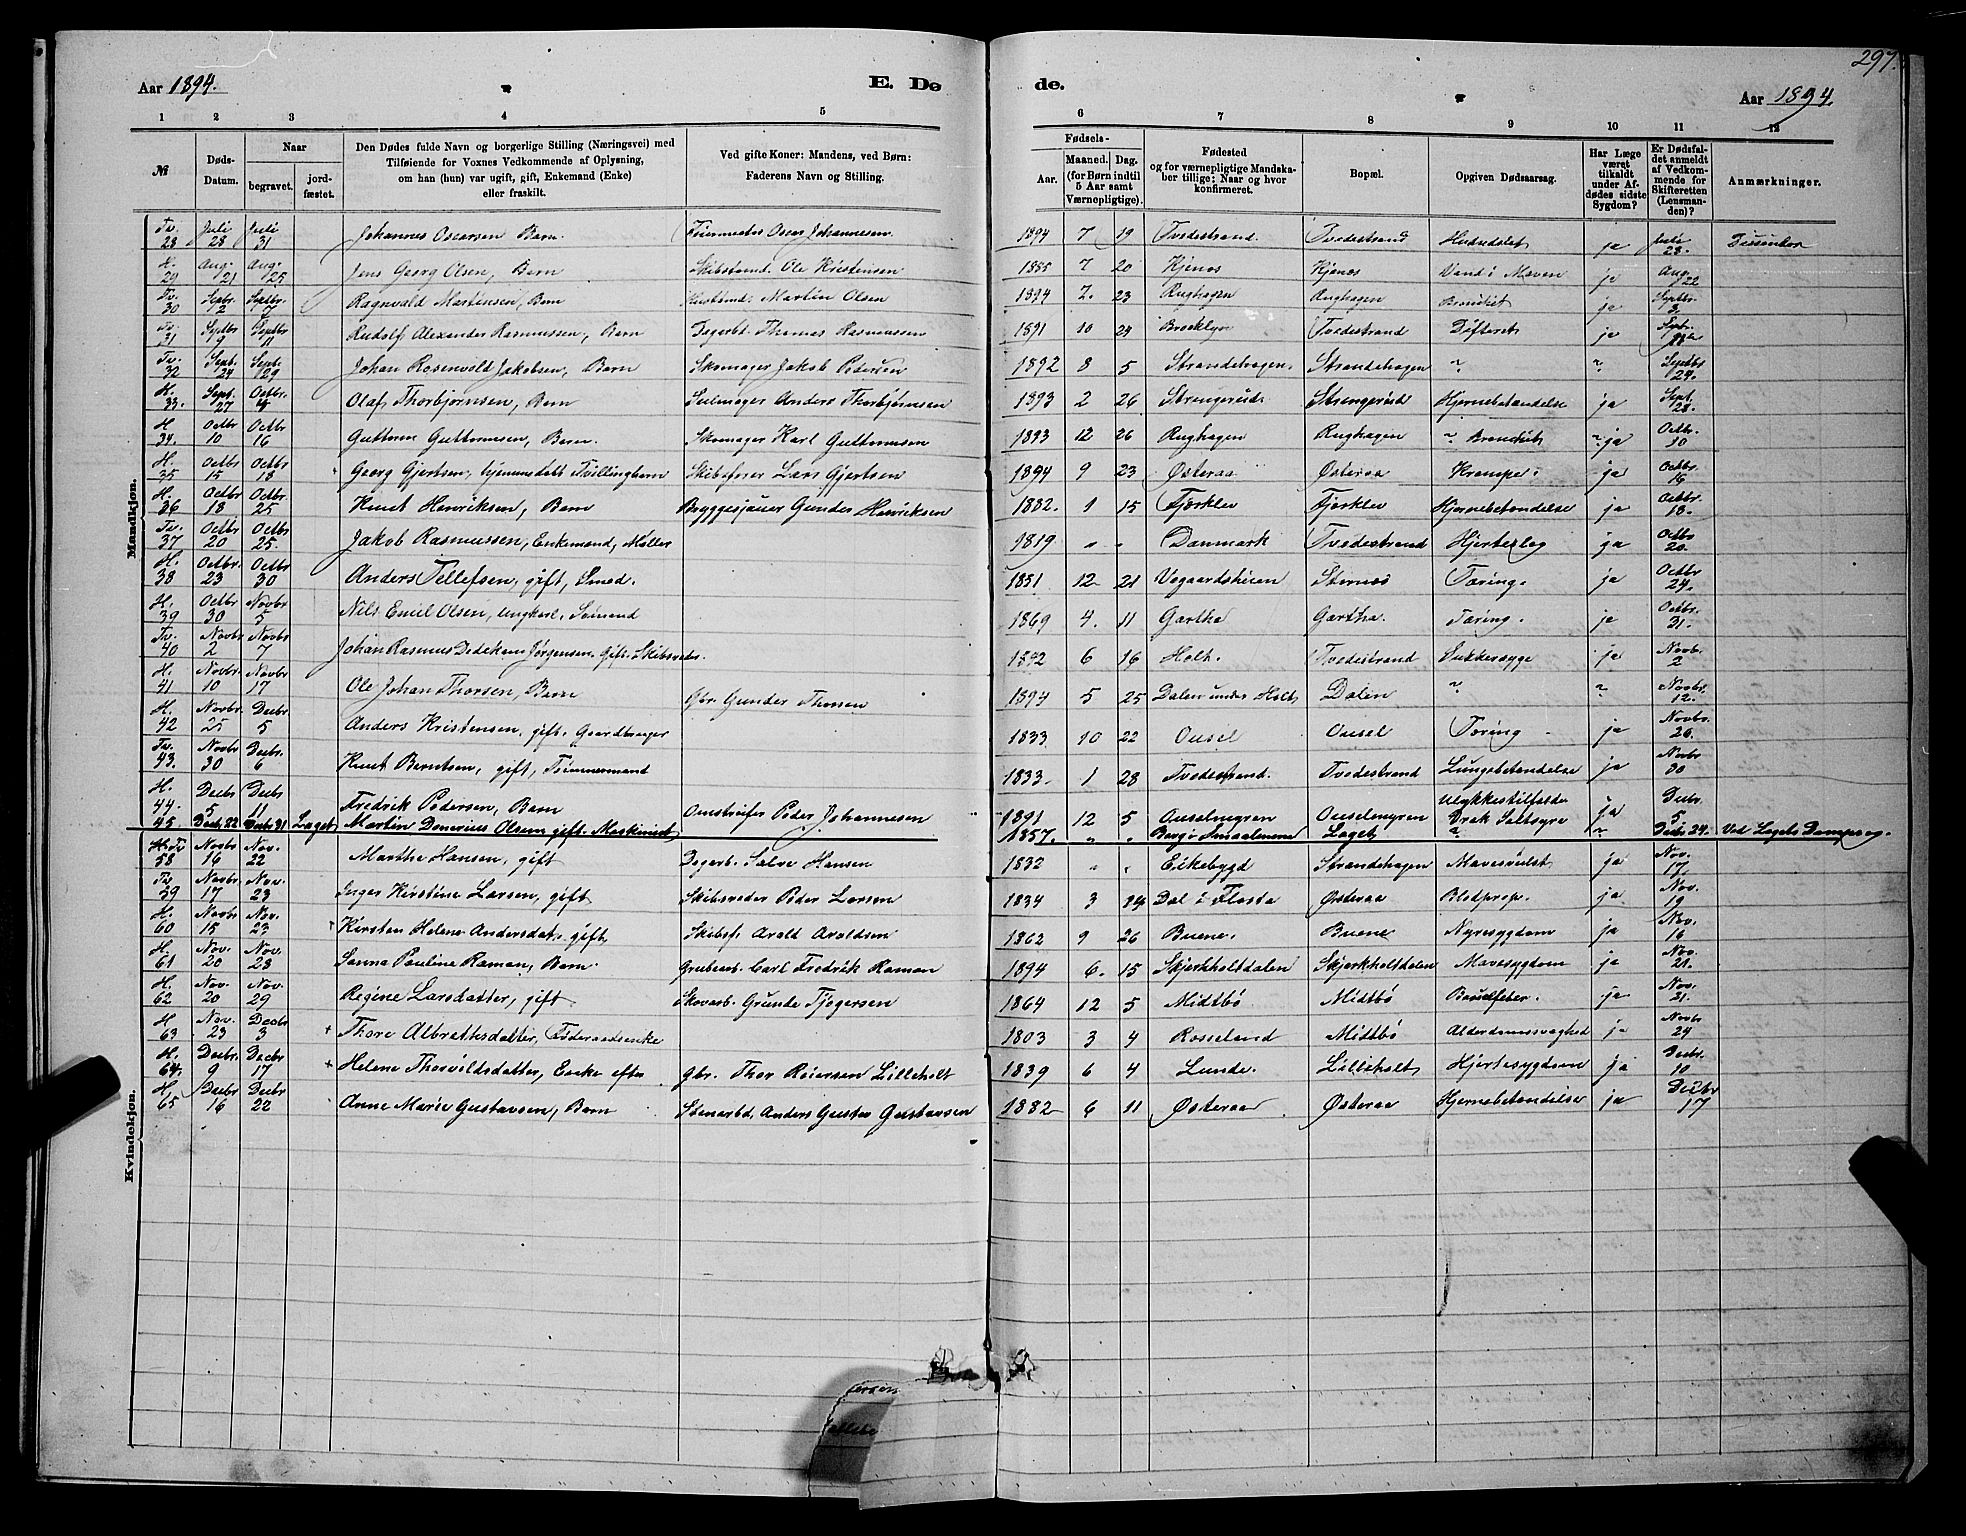 297.
Aar 1894. E. Dø de. Aar 1894.
1 2 3 4 5 6 7 8 9 10 11 12
№ Døds-Datum. Naar begravet. jordfæstet. Den Dødes fulde Navn og borgerlige Stilling (Næringsvei) med Tilføiende for Voxnes Vedkommende af Oplysning, om han (hun) var ugift, gift, Enkemand (Enke) eller fraskilt. Ved gifte Koner: Mandens, ved Børn: Faderens Navn og Stilling. Fødsels- Aar. Maaned. Dag. (for Børn indtil 5 Aar samt Værnepligtige). Fødested og for værnepligtige Mandskaber tillige: Naar og hvor konfirmeret. Bopæl. Opgiven Dødsaarsag. Har Læge været tilkaldt under Afdødes sidste Sygdom? Er Dødsfaldet anmeldt af Vedkommende for Skifteretten (Lensmanden)? Anmærkninger.
Mandkjøn.
Tv. 28 Juli 28 Juli 31 Johannes Oscarsen Barn. Feiermester Oscar Johannesen 1894 7 19 Tvedestrand. Tvedestrand ja Juli 28.
H. 29 Aug. 21 Aug. 25 Jens Georg Olsen, Barn Skibstømd. Ole Kristensen 1885 7 20 Kjenes Kjenes Vand i Maven ja Aug. 22
Tv. 30 Septbr. 2 Septbr. 7 Ragnvald Martinsen, Barn Martin Olsen 1894 7. 23 Rughagen Rughagen ja Septbr. 3.
Tv. 31 Septbr 9 Septbr 11 Rudolf Alexander Rasmussen, Barn Dagarb. Thomas Rasmussen 1891 10 24 Brooklyn Tvedestrand Difterit ja
Tv. 32 Sept. 24 Sept. 29 Johan Rosenvold Jakobsen, Barn Skomager Jakob Pedersen 1892 8 5 Strandehagen. Strandehagen " " Septbr 24.
H. 33. Sept. 27 Octbr. 4 Olaf Thorbjørnsen, Barn Seilmager Anders Thorbjørnsen 1893 2 26 Strengerød Strengerød Hjernebetændelse ja Sept. 28.
H 34. Octbr 10 Octbr 16 Guttorm Guttormsen, Barn. Skomager Karl Guttormsen 1893 12 26 Rughagen Rughagen " " ja Octbr. 10
H 35 Octbr 15 Octbr 18 Georg Gjertsen, hjemmedøbt Tvillingbarn Skibsfører Lars Gjertsen 1894 9 23 Østeraa Østeraa Krampe. ja Octbr. 16
H. 36 Octbr 18 Octbr. 25 Knut Henriksen, Barn Bryggesjauer Gunder Henriksen 1882. 1 15 Fjærklev Fjærklev Hjernebetændelse ja Octbr. 18.
Tv. 37 Octbr 20 Octbr 25. Jakob Rasmussen, Enkemand, Møller 1819 " " Danmark Tvedestrand Hjerteslag ja Octbr 20.
H. 38 Octbr. 23 Octbr 30 Anders Tellefsen, gift, Smed. 1851 12 21 Vegaardsheien Sternes Tæring. ja Octbr 24.
H. 39 Octbr 30 Novbr 5 Nils Emil Olsen, ungkarl, Sømand 1869 4. 11 Gartha Gartha. Tæring. ja Octbr. 31.
Tv. 40 Novbr 2 Novbr 7 Johan Rasmus Dedekam Jørgensen. Gift. Skibsreder. 1842 6 16 Holt. Tvedestrand Sukkersyge ja Novbr. 2
H. 41 Novbr. 10 Novbr 17 Ole Johan Thorsen, Barn Gbr. Gunder Thorsen 1894 5 25 Dalen under Holt Dalen " " Novbr. 12.
H. 42 Novbr. 25 Decbr. 5 Anders Kristensen, gift. Gaardbruger 1833 10 22 Ousel Ousel Tæring ja Novbr. 26.
Tv. 43. Novbr 30 Decbr. 6 Knut Berntsen, gift, Tømmermand 1833 1 28 Tvedestrand. Tvedestrand Lungebetændelse ja Novbr 30
H. 44. Decbr 5 Decbr 11 Fredrik Pedersen, Barn Omstreifer Peder Johannesen 1891 12 5 Ouselmyren Ouselmyren Ulykkestilfælde Drak Saltsyre ja Decbr. 5
45. Decb. 22 Decbr 31 Laget Martin Olsen gift. Maskinist 1857. " " Berg i Smaalenene Laget " " Decbr 24. Ved Lagets Dampsag.
Kvindekjøn.
H. Tv 58 Novbr 16 Nov. 22 Marthe Hansen, gift Dagarb. Salve Hansen 1832 " " Eikebygd Strandehagen Mavesvulst ja Nov. 17.
Tv. 59 Novbr. 17 Nov. 23 Inger Kirstine Larsen, gift Skibsreder Peder Larsen 1834 3 14 Dal i Flosta Østeraa Blodprop. ja Nov. 19
H. 60 Novbr. 15 Nov. 23 Kirsten Helene Andersdat., gift. Skibsf. Arold Aroldsen 1862 9 26 Buene. Buene Nyresygdom ja Nov. 16
H. 61 Nov. 20 Nov. 28 Sanna Pauline Raman, Barn. Grubearb. Carl Fredrik Raman 1894 6. 15 Skjerkholtdalen Skjerkholtdalen Mavesygdom ja Nov. 21.
H. 62 Nov. 20 Nov. 29 Regine Larsdatter, gift Skovarb. Grunde Tjøgersen 1864 12 5 Midtbø Midtbø Barselfeber. ja Nov. 21.
H 63 Nov. 23 Decbr 3 + Thore Albrettsdatter, Føderaadsenke 1803 3 4 Rosseland Midtbø Alderdomssvaghed ja Novbr 24
H. 64. Decbr. 9 Decbr 17 + Helene Thorvildsdatter, Enke efter gbr. Thor Reiersen Lilleholt 1839 6 4 Lunde. Lilleholt Hjertesygdom ja Decbr. 10
H. 65 Decbr. 16 Decbr 22 Anne Marie Gustavsen, Barn Stenarbd. Anders Gustav Gustavsen 1882 6 11 Østeraa Østeraa Hjernebetændelse ja Decbr 17